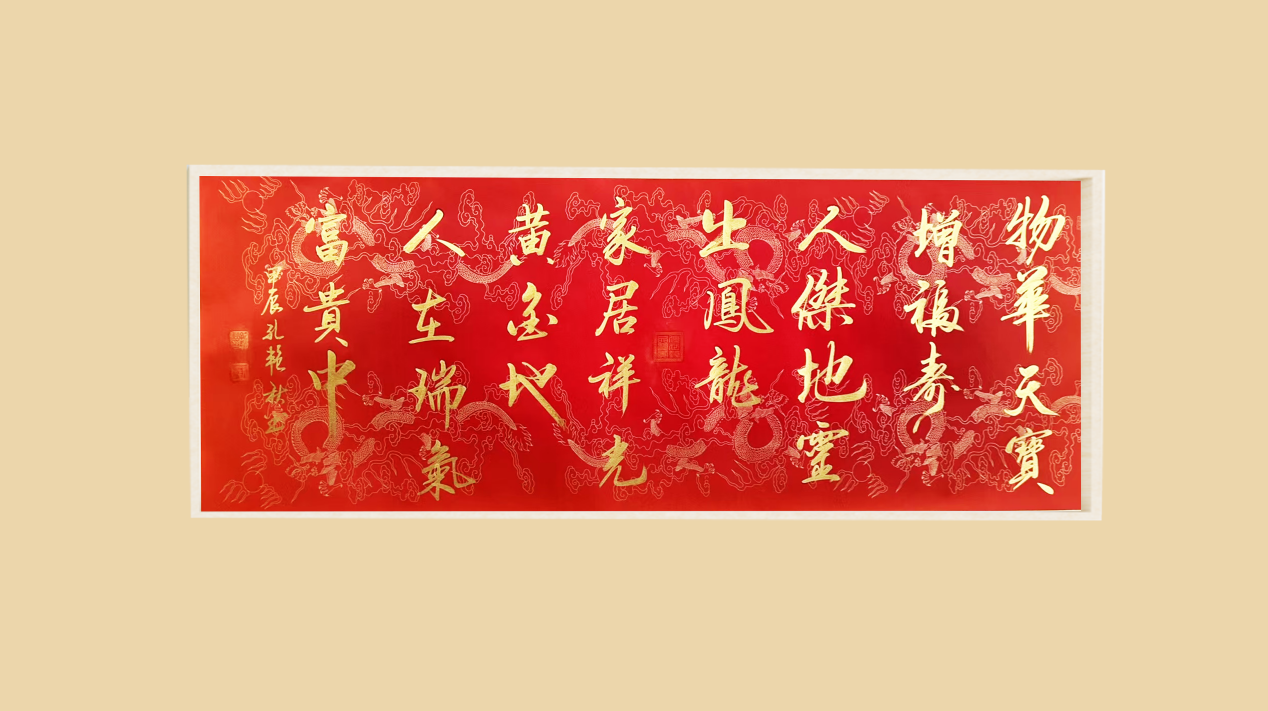 物華天寶
增福壽
人傑地靈
出鳳龍
家居祥光
黃金地
人在瑞氣
富貴中
甲辰孔頼秋書